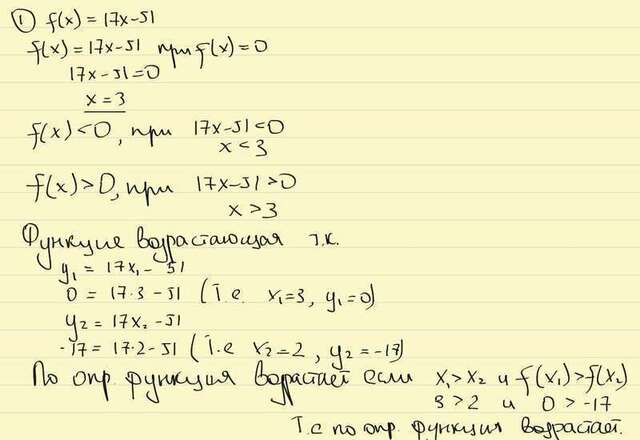 ① f(x) = 17x-51
f(x) = 17x-51 при f(x) = 0
17x-51=0
x = 3
f(x) < 0, при 17x-51 < 0
x < 3
f(x) > 0, при 17x-51 > 0
x > 3
Функция возрастающая т.к.
y₁ = 17x₁ - 51
0 = 17·3 - 51 (т.е. x₁=3, y₁=0)
y₂ = 17x₂ - 51
-17 = 17·2 - 51 (т.е x₂=2, y₂ = -17)
По опр. функция возрастает если x₁ > x₂ и f(x₁) > f(x₂)
3 > 2 и 0 > -17
т.е по опр. функция возрастает.